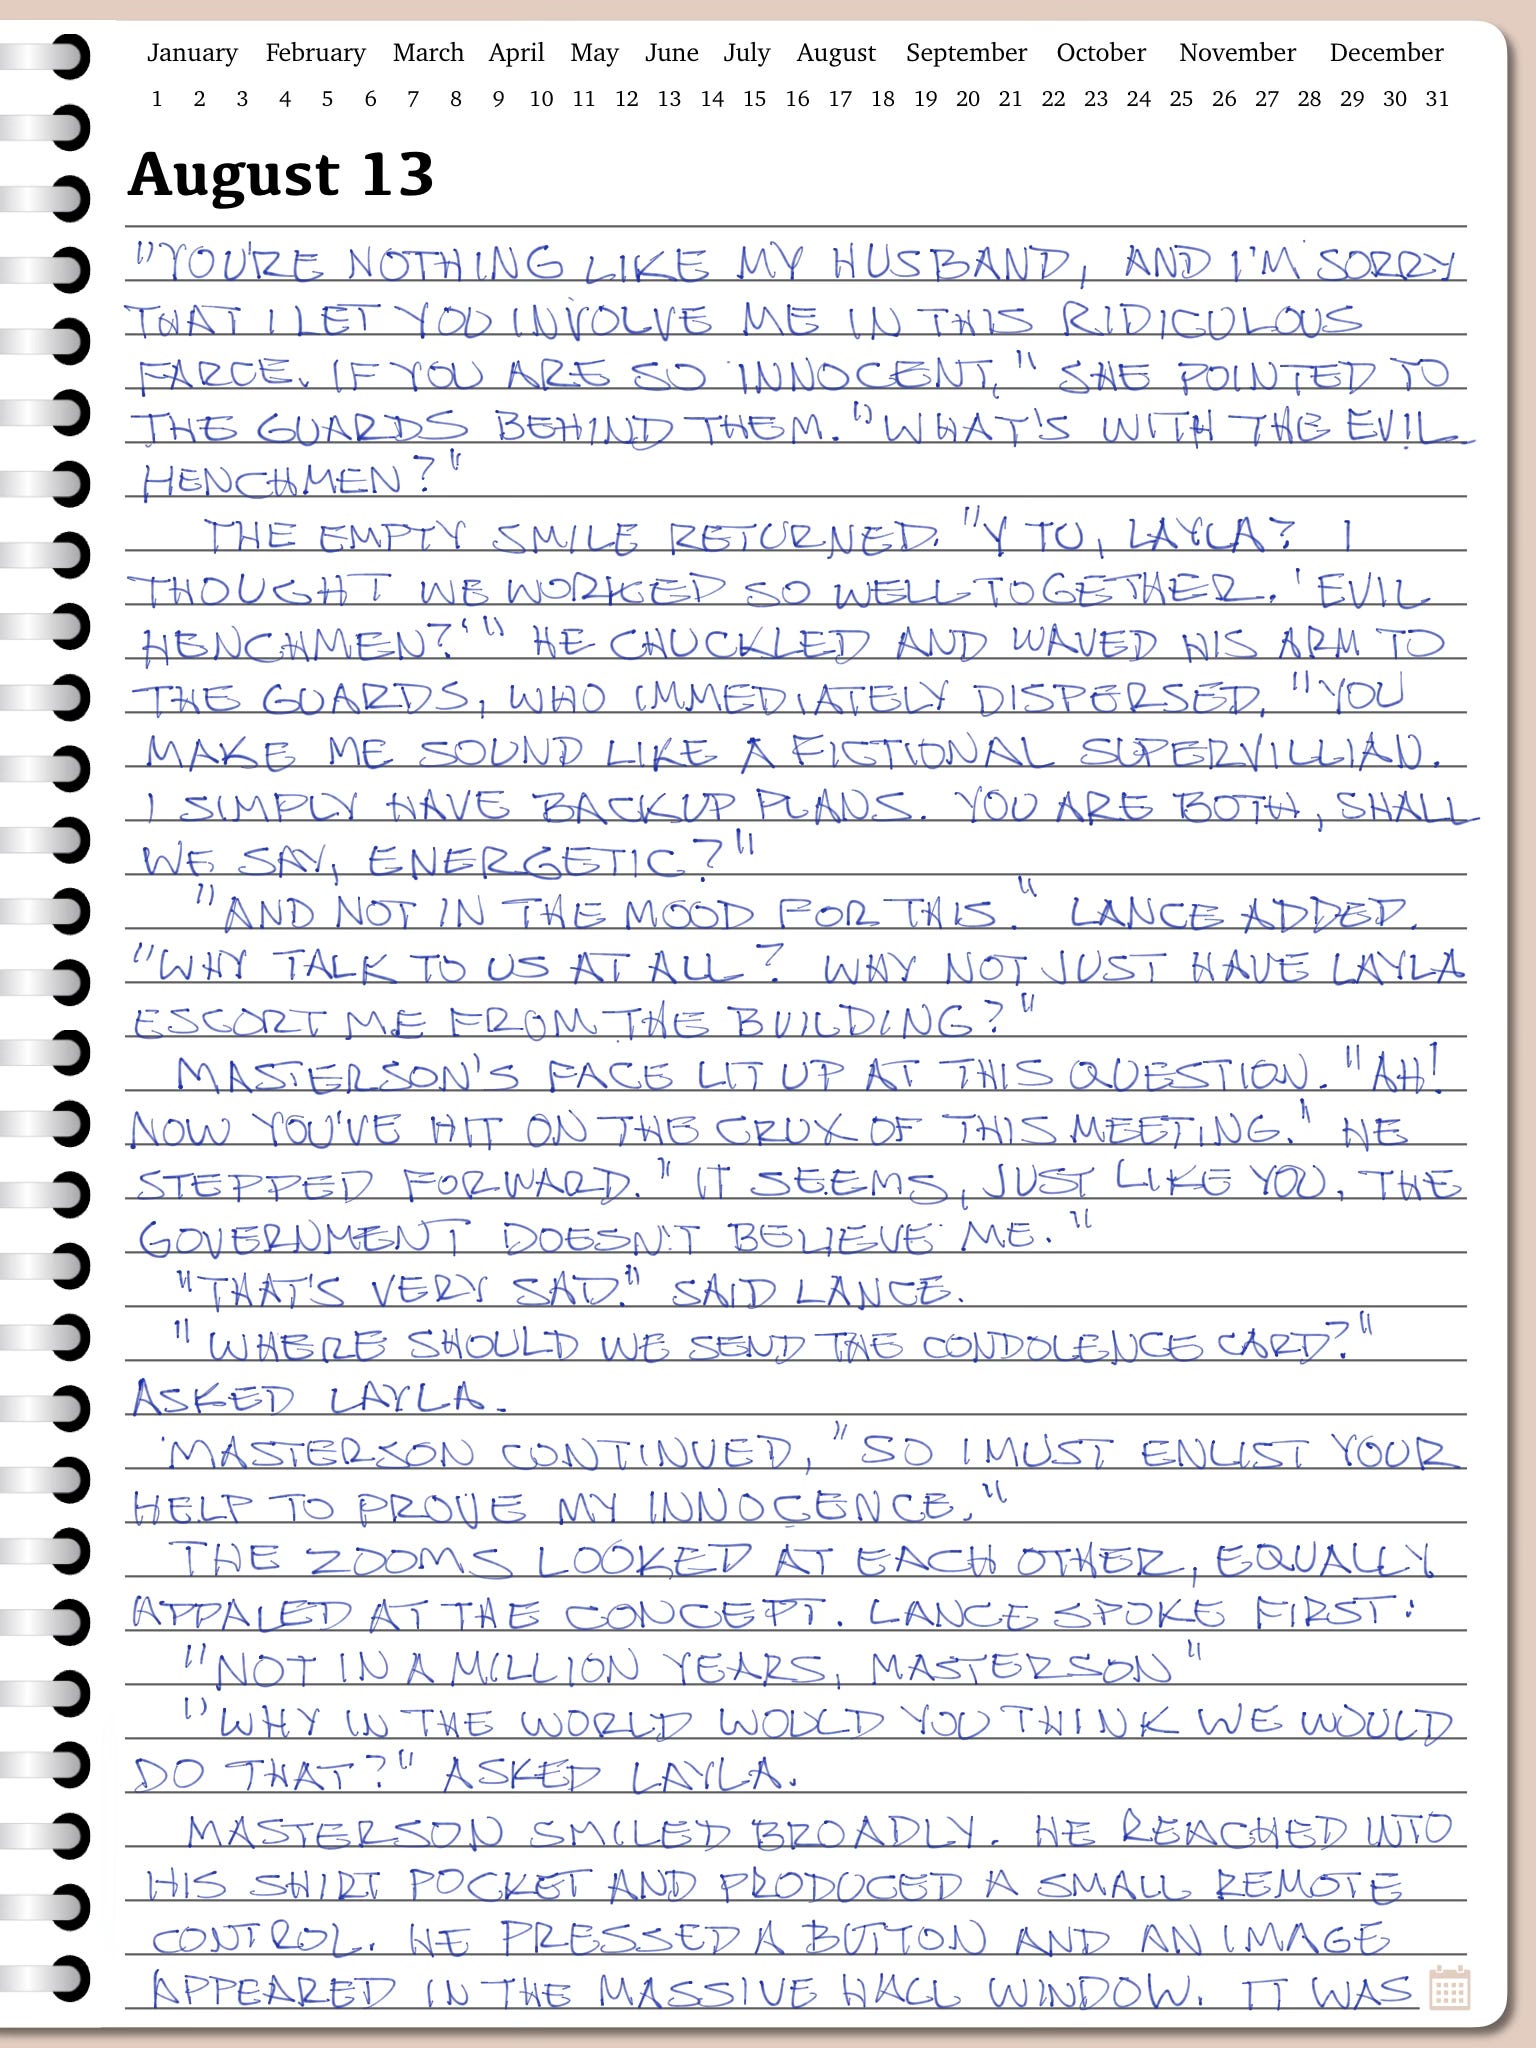 January February March April May June July August September October November December
1 2 3 4 5 6 7 8 9 10 11 12 13 14 15 16 17 18 19 20 21 22 23 24 25 26 27 28 29 30 31
August 13
"YOU'RE NOTHING LIKE MY HUSBAND, AND I'M SORRY
THAT I LET YOU INVOLVE ME IN THIS RIDICULOUS
FARCE. IF YOU ARE SO INNOCENT," SHE POINTED TO
THE GUARDS BEHIND THEM. "WHAT'S WITH THE EVIL
HENCHMEN?"
THE EMPTY SMILE RETURNED. "Y TU, LAYLA? I
THOUGHT WE WORKED SO WELL TOGETHER. 'EVIL
HENCHMEN?'" HE CHUCKLED AND WAVED HIS ARM TO
THE GUARDS, WHO IMMEDIATELY DISPERSED. "YOU
MAKE ME SOUND LIKE A FICTIONAL SUPERVILLIAN.
I SIMPLY HAVE BACKUP PLANS. YOU ARE BOTH, SHALL
WE SAY, ENERGETIC?"
"AND NOT IN THE MOOD FOR THIS." LANCE ADDED.
"WHY TALK TO US AT ALL? WHY NOT JUST HAVE LAYLA
ESCORT ME FROM THE BUILDING?"
MASTERSON'S FACE LIT UP AT THIS QUESTION. "AH!
NOW YOU'VE HIT ON THE CRUX OF THIS MEETING." HE
STEPPED FORWARD. "IT SEEMS, JUST LIKE YOU, THE
GOVERNMENT DOESN'T BELIEVE ME."
"THAT'S VERY SAD." SAID LANCE.
"WHERE SHOULD WE SEND THE CONDOLENCE CARD?"
ASKED LAYLA.
MASTERSON CONTINUED, "SO I MUST ENLIST YOUR
HELP TO PROVE MY INNOCENCE."
THE ZOOMS LOOKED AT EACH OTHER, EQUALLY
APPALED AT THE CONCEPT. LANCE SPOKE FIRST:
"NOT IN A MILLION YEARS, MASTERSON"
"WHY IN THE WORLD WOULD YOU THINK WE WOULD
DO THAT?" ASKED LAYLA.
MASTERSON SMILED BROADLY. HE REACHED INTO
HIS SHIRT POCKET AND PRODUCED A SMALL REMOTE
CONTROL. HE PRESSED A BUTTON AND AN IMAGE
APPEARED IN THE MASSIVE HALL WINDOW. IT WAS